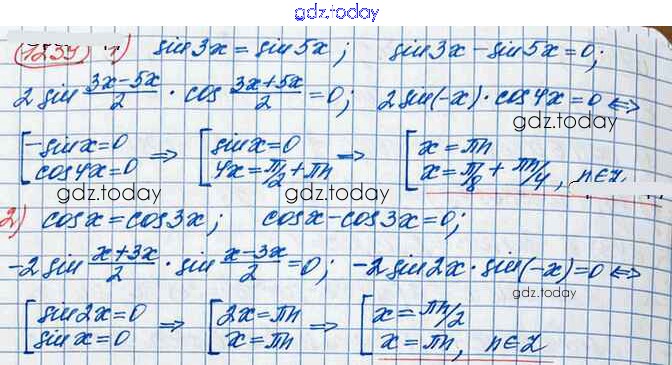 gdz.today
1239 1) sin3x = sin5x; sin3x - sin5x = 0;
2 sin (3x-5x)/2 · cos (3x+5x)/2 = 0; 2 sin(-x) · cos4x = 0 <=>
gdz.today
[-sinx = 0 => [sinx = 0 => [x = πn
cos4x = 0 4x = π/2 + πn x = π/8 + πn/4, n∈Z
gdz.today gdz.today
2) cosx = cos3x; cosx - cos3x = 0;
-2 sin (x+3x)/2 · sin (x-3x)/2 = 0; -2 sin2x · sin(-x) = 0 <=>
gdz.today
[sin2x = 0 => [2x = πn => [x = πn/2
sinx = 0 x = πn x = πn, n∈Z